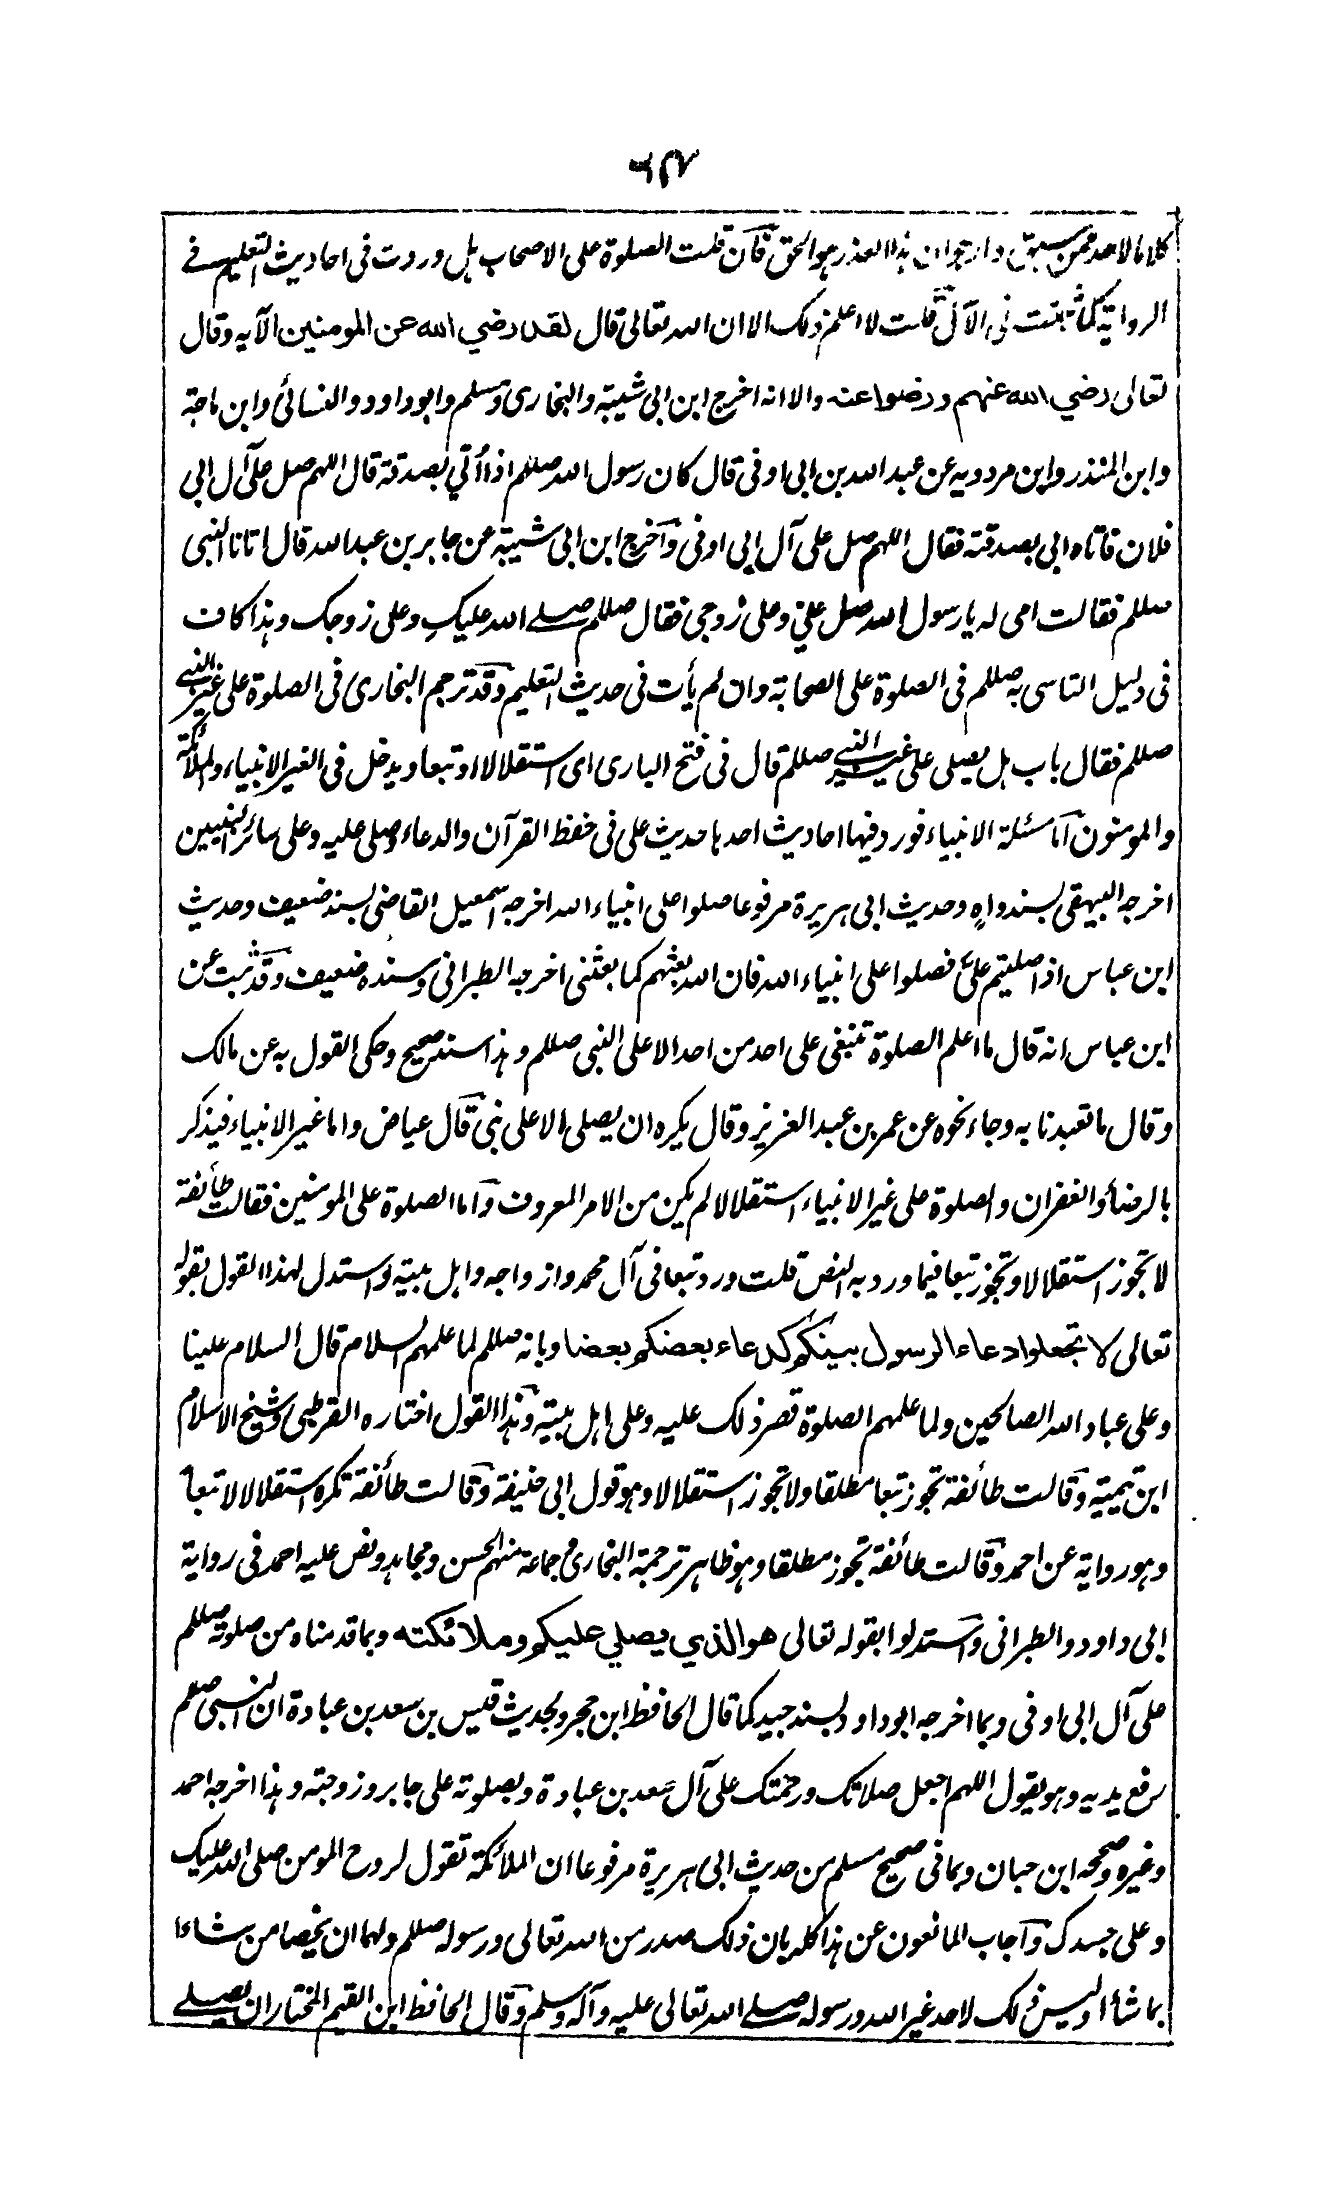 ٦٢٧
كلاما لاحد ممن سبق وارجو ان هذا العذر هو الحق فان قلت الصلوة على الاصحاب هل وردت فى احاديث التعليم فے
الرواية كما ثبتت فى الآل قلت لا اعلم ذلك الا ان الله تعالى قال لقد رضي الله عن المومنين الآيه وقال
تعالى رضي الله عنهم ورضوا عنه والا انه اخرج ابن ابى شيبة والبخارى ومسلم وابو داود والنسائى وابن ماجة
وابن المنذر وابن مردويه عن عبد الله بن ابى اوفى قال كان رسول الله صللم اذا أتي بصدقة قال اللهم صل على آل ابى
فلان فاتاه ابى بصدقته فقال اللهم صل على آل ابى اوفى واخرج ابن ابى شيبة عن جابر بن عبد الله قال اتانا النبى
صللم فقالت امى له يا رسول الله صل علىّ وعلى زوجى فقال صللم صلے الله عليكِ وعلى زوجك وهذا كاف
فى دليل التاسى به صللم فى الصلوة على الصحابة وان لم يأت فى حديث التعليم وقد ترجم البخارى فى الصلوة على غير النبے
صللم فقال باب هل يصلى على غير النبے صللم قال فى فتح البارى اى استقلالا او تبعا ويدخل فى الغير الانبياء والملائكة
والمومنون اما مسئلة الانبياء فورد فيها احاديث احدها حديث على فى حفظ القرآن والدعاء وصلى عليه وعلى سائر النبيين
اخرجه البيهقى بسند واهٍ وحديث ابى هريرة مرفوعا صلوا على انبياء الله اخرجه اسمعيل القاضى بسند ضعيف وحديث
ابن عباس اذا صليتم علىّ فصلوا على انبياء الله فان الله بعثهم كما بعثنى اخرجه الطبرانى وسنده ضعيف وقد ثبت عن
ابن عباس انه قال ما اعلم الصلوة تنبغى على احد من احد الا على النبى صللم وهذا سند صحيح وحكى القول به عن مالك
وقال ما تعبدنا به وجاء نحوه عن عمر بن عبد العزيز وقال يكره ان يصلى الا على نبى قال عياض واما غير الانبياء فيذكر
بالرضاء والغفران والصلوة على غير الانبياء استقلالا لم يكن من الامر المعروف واما الصلوة على المومنين فقالت طائفة
لا تجوز استقلالا وتجوز تبعا فيما ورد به النص قلت ورد تبعا فى آل محمد وازواجه واهل بيته واستدل لهذا القول بقوله
تعالى لا تجعلوا دعاء الرسول بينكم كدعاء بعضكم بعضا وبانه صللم لما علمهم السلام قال السلام علينا
وعلى عباد الله الصالحين ولما علمهم الصلوة قصر ذلك عليه وعلى اهل بيته وهذا القول اختاره القرطبى وشيخ الاسلام
ابن تيمية وقالت طائفة تجوز تبعا مطلقا ولا تجوز استقلالا وهو قول ابى حنيفة وقالت طائفة تكره استقلالا لا تبعا
وهو رواية عن احمد وقالت طائفة تجوز مطلقا وهو ظاهر ترجمة البخارى وجماعة منهم الحسن ومجاهد ونص عليه احمد فى رواية
ابى داود والطبرانى واستدلوا بقوله تعالى هو الذي يصلي عليكم وملائكته وبما قدمناه من صلوته صللم
على آل ابى اوفى وبما اخرجه ابو داود بسند جيد كما قال الحافظ ابن حجر وبحديث قيس بن سعد بن عبادة ان النبى صلعم
رفع يديه وهو يقول اللهم اجعل صلاتك ورحمتك على آل سعد بن عبادة وبصلوته على جابر وزوجته وهذا اخرجه احمد
وغيره وصححه ابن حبان وبما فى صحيح مسلم من حديث ابى هريرة مرفوعا ان الملائكة تقول لروح المومن صلى الله عليك
وعلى جسدك واجاب المانعون عن هذا كله بان ذلك صدر من الله تعالى ورسوله صللم ولهما ان يخصا من شاءا
بما شاءا وليس ذلك لاحد غير الله ورسوله صلے الله تعالى عليه وآله وسلم وقال الحافظ ابن القيم المختار ان يصلے